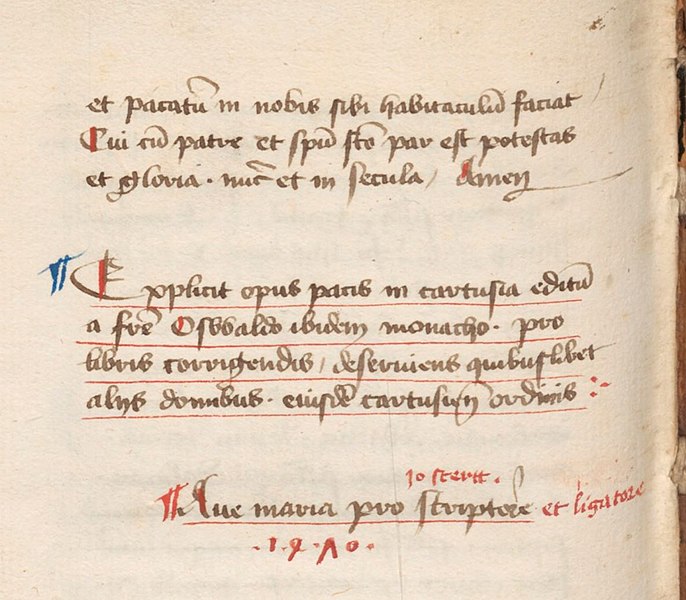 et pacatū in nobis sibi habitaculū faciat
Cui cū patre et spū scō par est potestas
et gloria . nūc et in secula / Amen
¶ Explicit opus pacis in cartusia editū
a frē Oswaldo ibidem monacho . pro
libris corrigendis / deserviens quibuslibet
alijs domibus . eiusdē cartusien̄ ordinis :~
Jo stertt .
¶ Ave maria pro scriptore et ligatore
. 1 . 4 . Λ 0 .